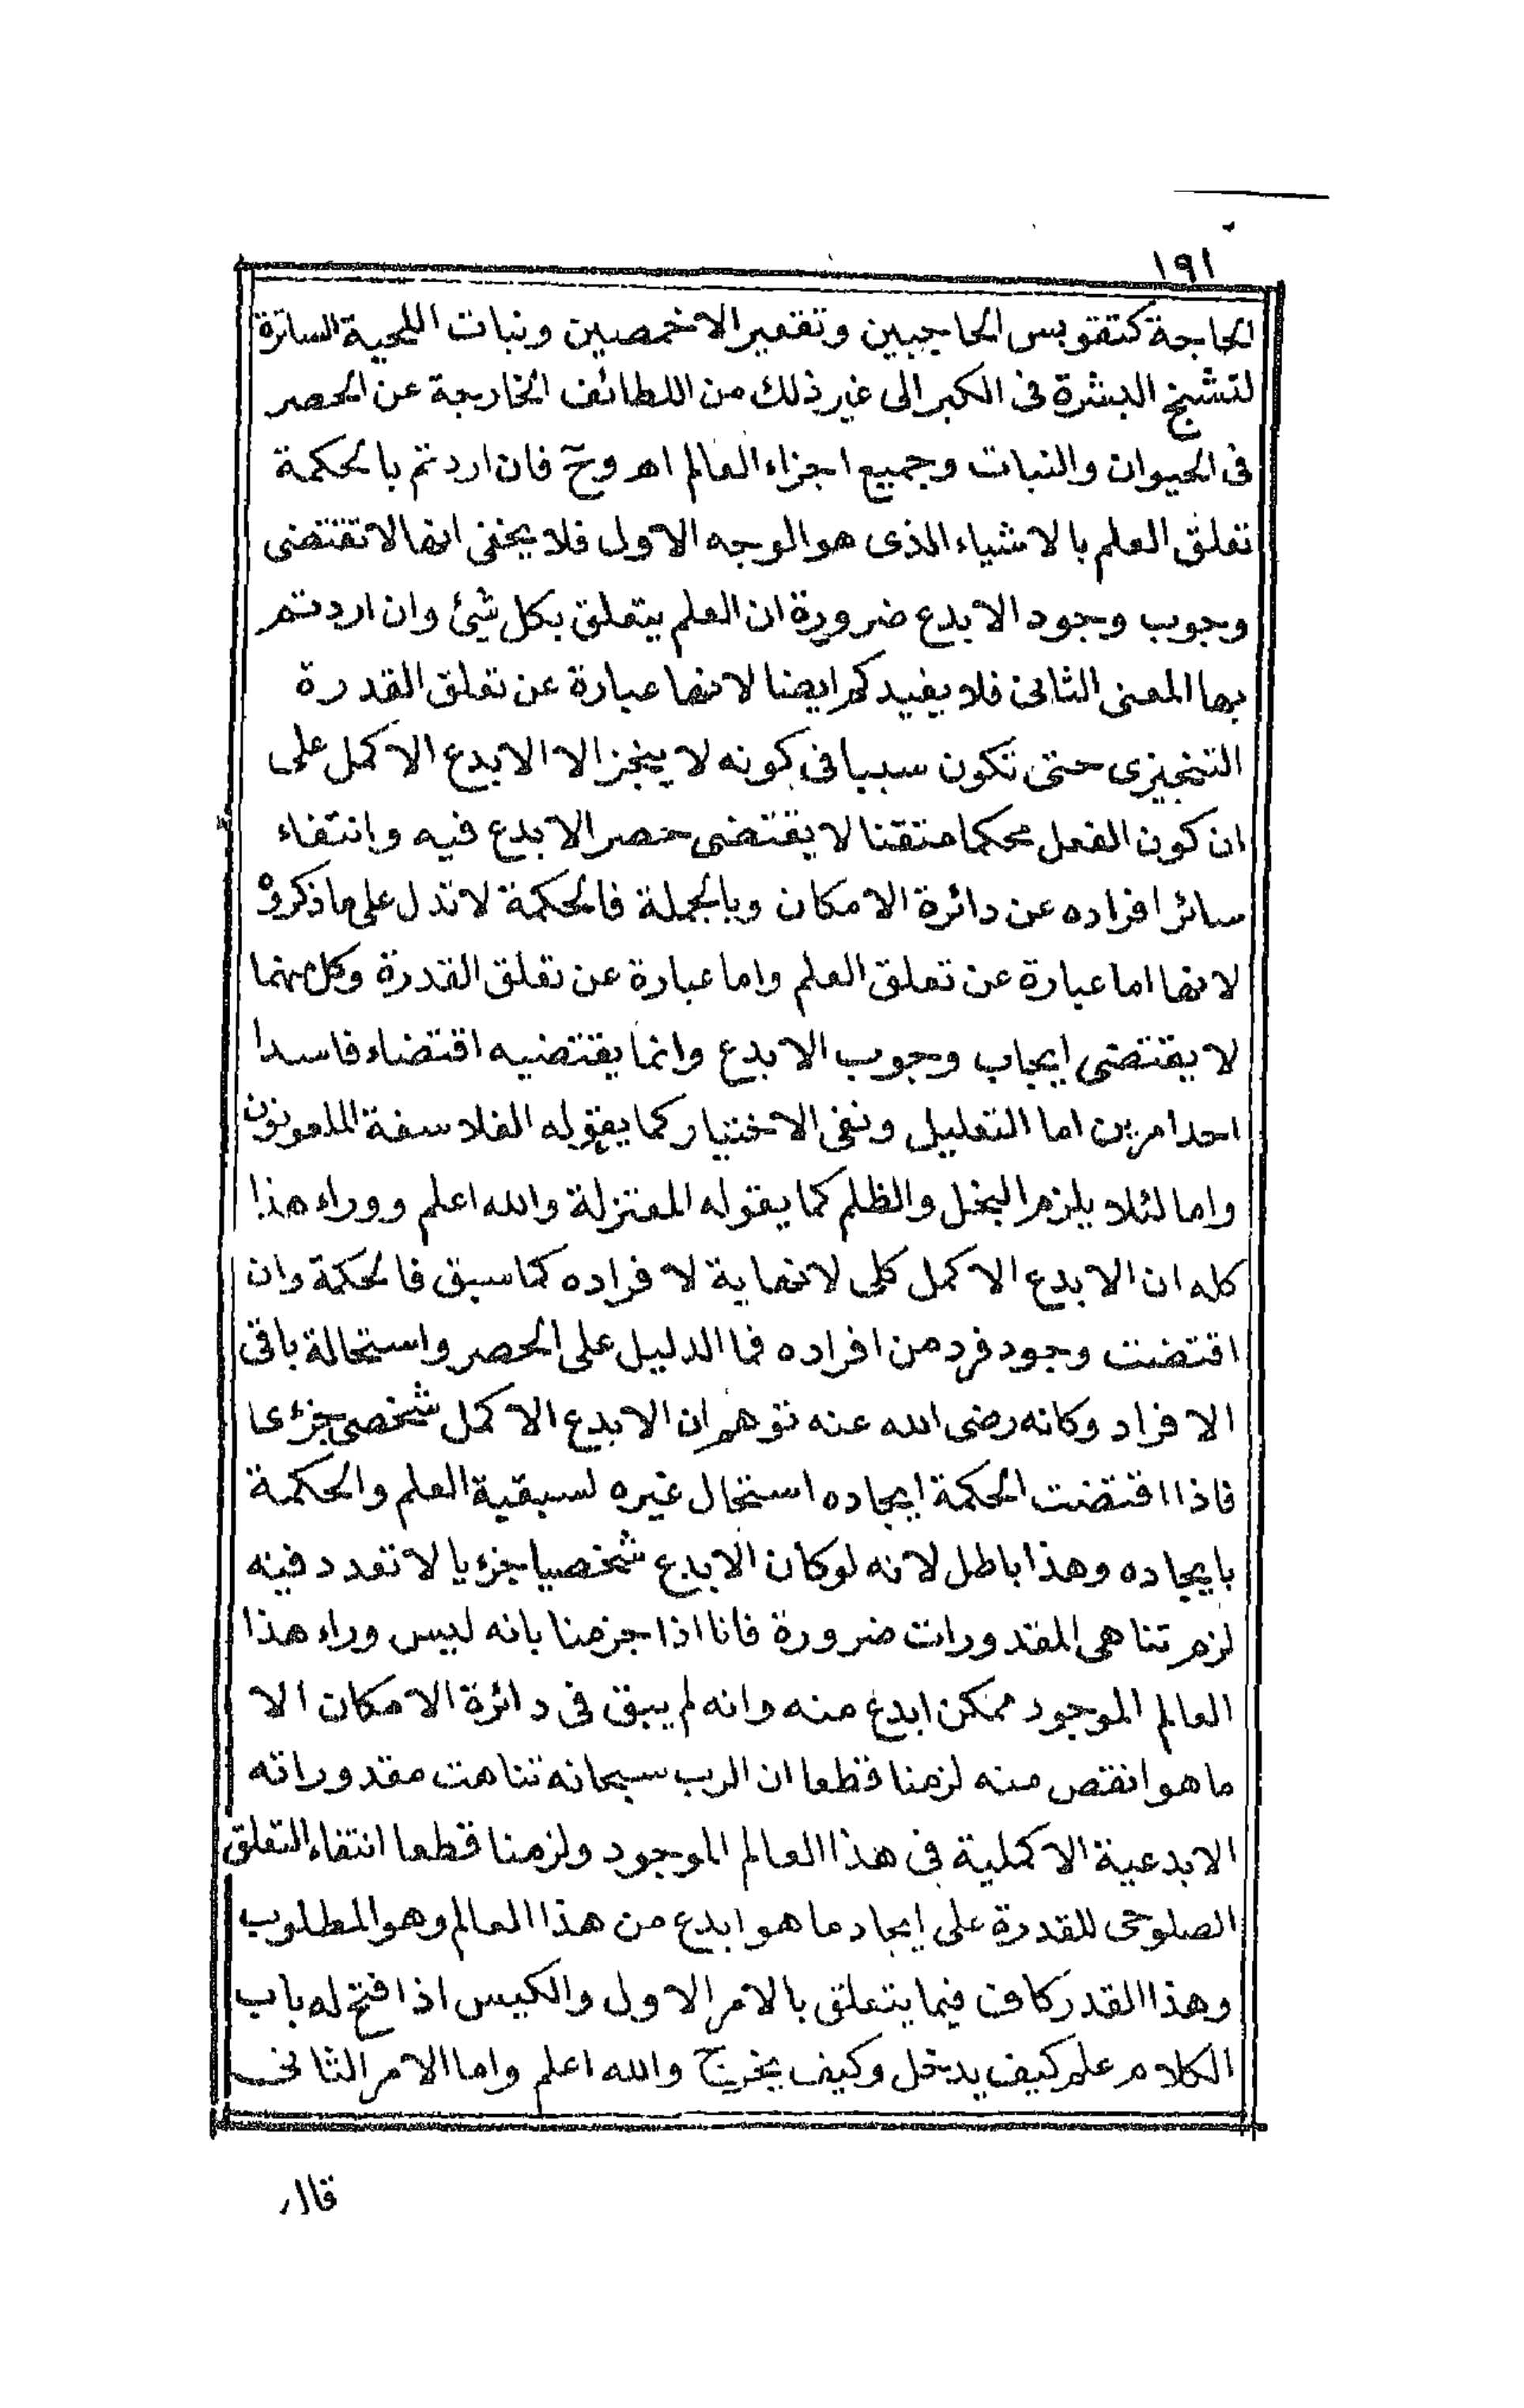 ١٩١
الحاجة كتقويس الحاجبين وتقعير الاخمصين ونبات اللحية الساترة
لتشنج البشرة فى الكبر الى غير ذلك من اللطائف الخارجة عن الحصر
فى الحيوان والنبات وجميع اجزاء العالم اهـ وحٓ فان اردتم بالحكمة
تعلق العلم بالاشياء الذى هو الوجه الاول فلا يخفى انها لا تقتضى
وجوب وجود الابدع ضرورة ان العلم يتعلق بكل شيئ وان اردتم
بها المعنى الثانى فلا يفيدكم ايضا لانها عبارة عن تعلق القدرة
التنجيزى حتى تكون سببا فى كونه لا ينجز الا الابدع الاكمل على
ان كون الفعل محكما متقنا لا يقتضى حصر الابدع فيه وانتفاء
سائر افراده عن دائرة الامكان وبالجملة فالحكمة لا تدل على ما ذكروه
لانها اما عبارة عن تعلق العلم واما عبارة عن تعلق القدرة وكل منهما
لا يقتضى ايجاب وجوب الابدع وانما يقتضيه اقتضاء فاسدا
احد امرين اما التعليل ونفى الاختيار كما يقوله الفلاسفة الملعونون
واما لئلا يلزم البخل والظلم كما يقوله المعتزلة والله اعلم ووراء هذا
كله ان الابدع الاكمل كلى لا نهاية لافراده كما سبق فالحكمة وان
اقتضت وجود فرد من افراده فما الدليل على الحصر واستحالة باقى
الافراد وكانه رضى الله عنه توهم ان الابدع الاكمل شخصى جزءى
فاذا اقتضت الحكمة ايجاده استحال غيره لسبقية العلم والحكمة
بايجاده وهذا باطل لانه لو كان الابدع شخصيا جزءيا لا تعدد فيه
لزم تناهى المقدورات ضرورة فانا اذا جزمنا بانه ليس وراء هذا
العالم الموجود ممكن ابدع منه وانه لم يبق فى دائرة الامكان الا
ما هو انقص منه لزمنا قطعا ان الرب سبحانه تناهت مقدوراته
الابدعية الاكملية فى هذا العالم الموجود ولزمنا قطعا انتفاء التعلق
الصلوحى للقدرة على ايجاد ما هو ابدع من هذا العالم وهو المطلوب
وهذا القدر كاف فيما يتعلق بالامر الاول والكيس اذا فتح له باب
الكلام علم كيف يدخل وكيف يخرج والله اعلم واما الامر الثانى
قال